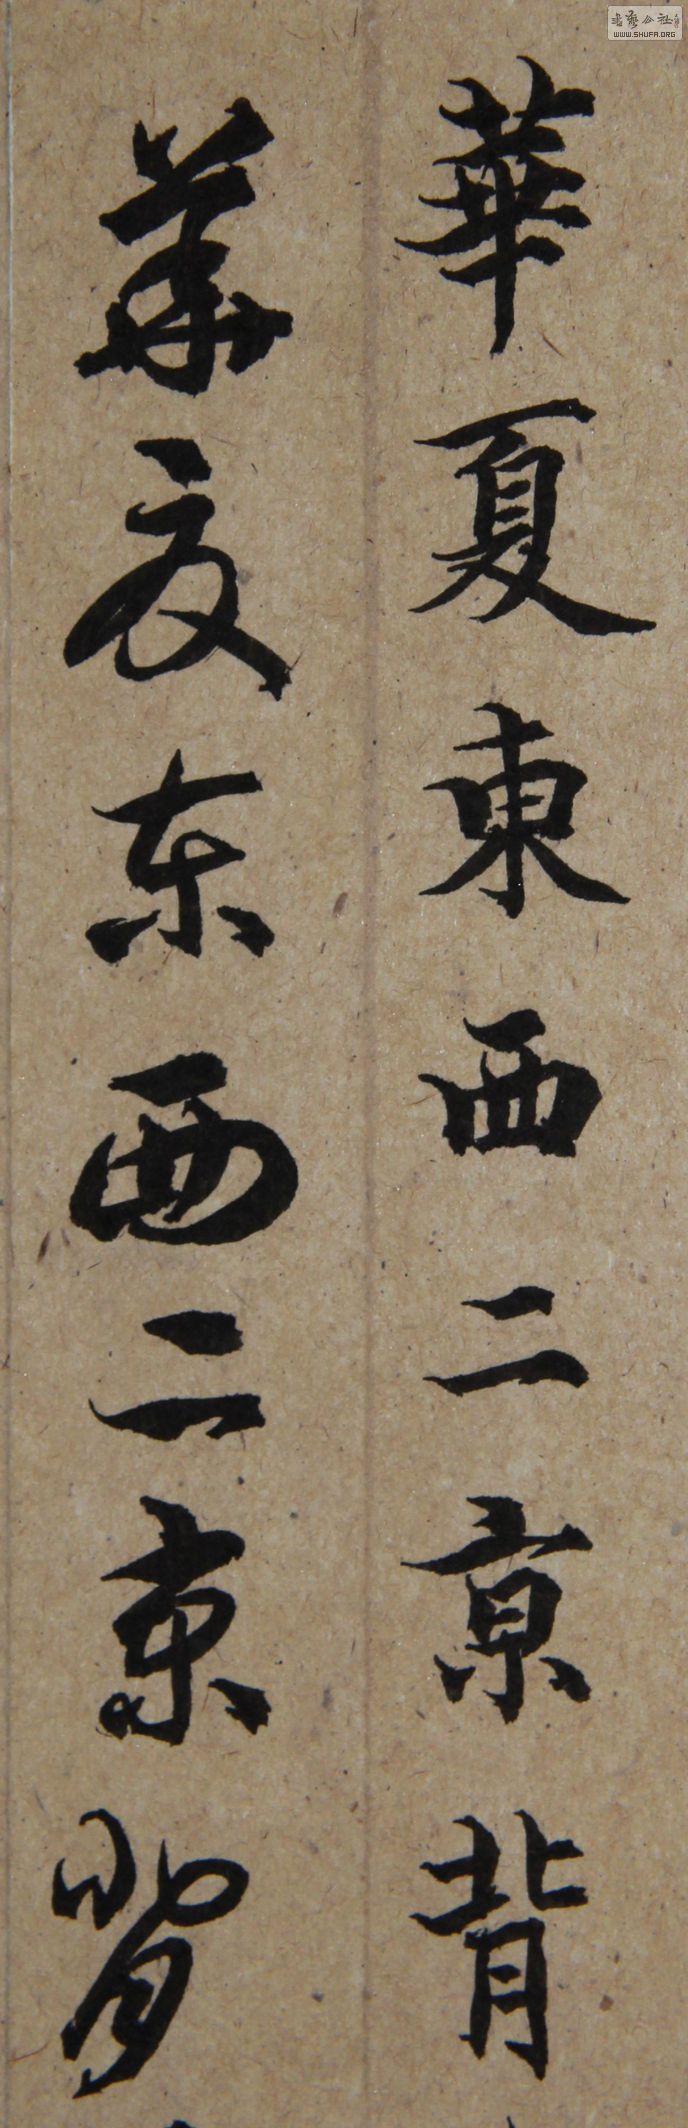 華夏東西二京背
華夏東西二京背
WWW.SHUFA.ORG